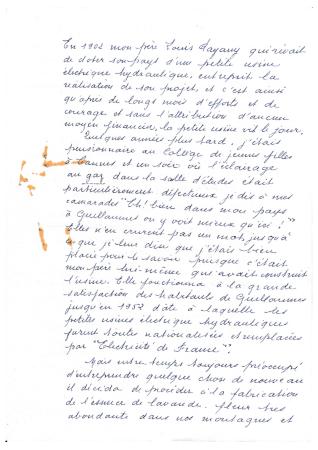 En 1902 mon père Louis Payany qui rêvait
de doter son pays d'une petite usine
électrique hydraulique, entreprit la
réalisation de son projet, et c'est ainsi
qu'après de longs mois d'efforts et de
courage et sans l'attribution d'aucun
moyen financier, la petite usine vit le jour.
Quelques années plus tard, j'étais
pensionnaire au Collège de jeunes filles
à et un soir où l'éclairage
au gaz dans la salle d'études était
particulièrement défectueux je dis à mes
camarades "Eh! bien dans mon pays
à Guillaumes on y voit mieux qu'ici!"
Elles n'en crurent pas un mot, jusqu'à
ce que je leur dise que j'étais bien
placée pour le savoir puisque c'était
mon père lui-même qui avait construit
l'usine. Elle fonctionna à la grande
satisfaction des habitants de Guillaumes
jusqu'en 1952 date à laquelle les
petites usines électrique hydrauliques
furent toutes nationalisées et remplacées
par "Electricité de France".
Mais entre temps toujours préoccupé
d'entreprendre quelque chose de nouveau
il décida de procéder à la fabrication
de l'essence de lavande. fleur très
abondante dans nos montagnes et